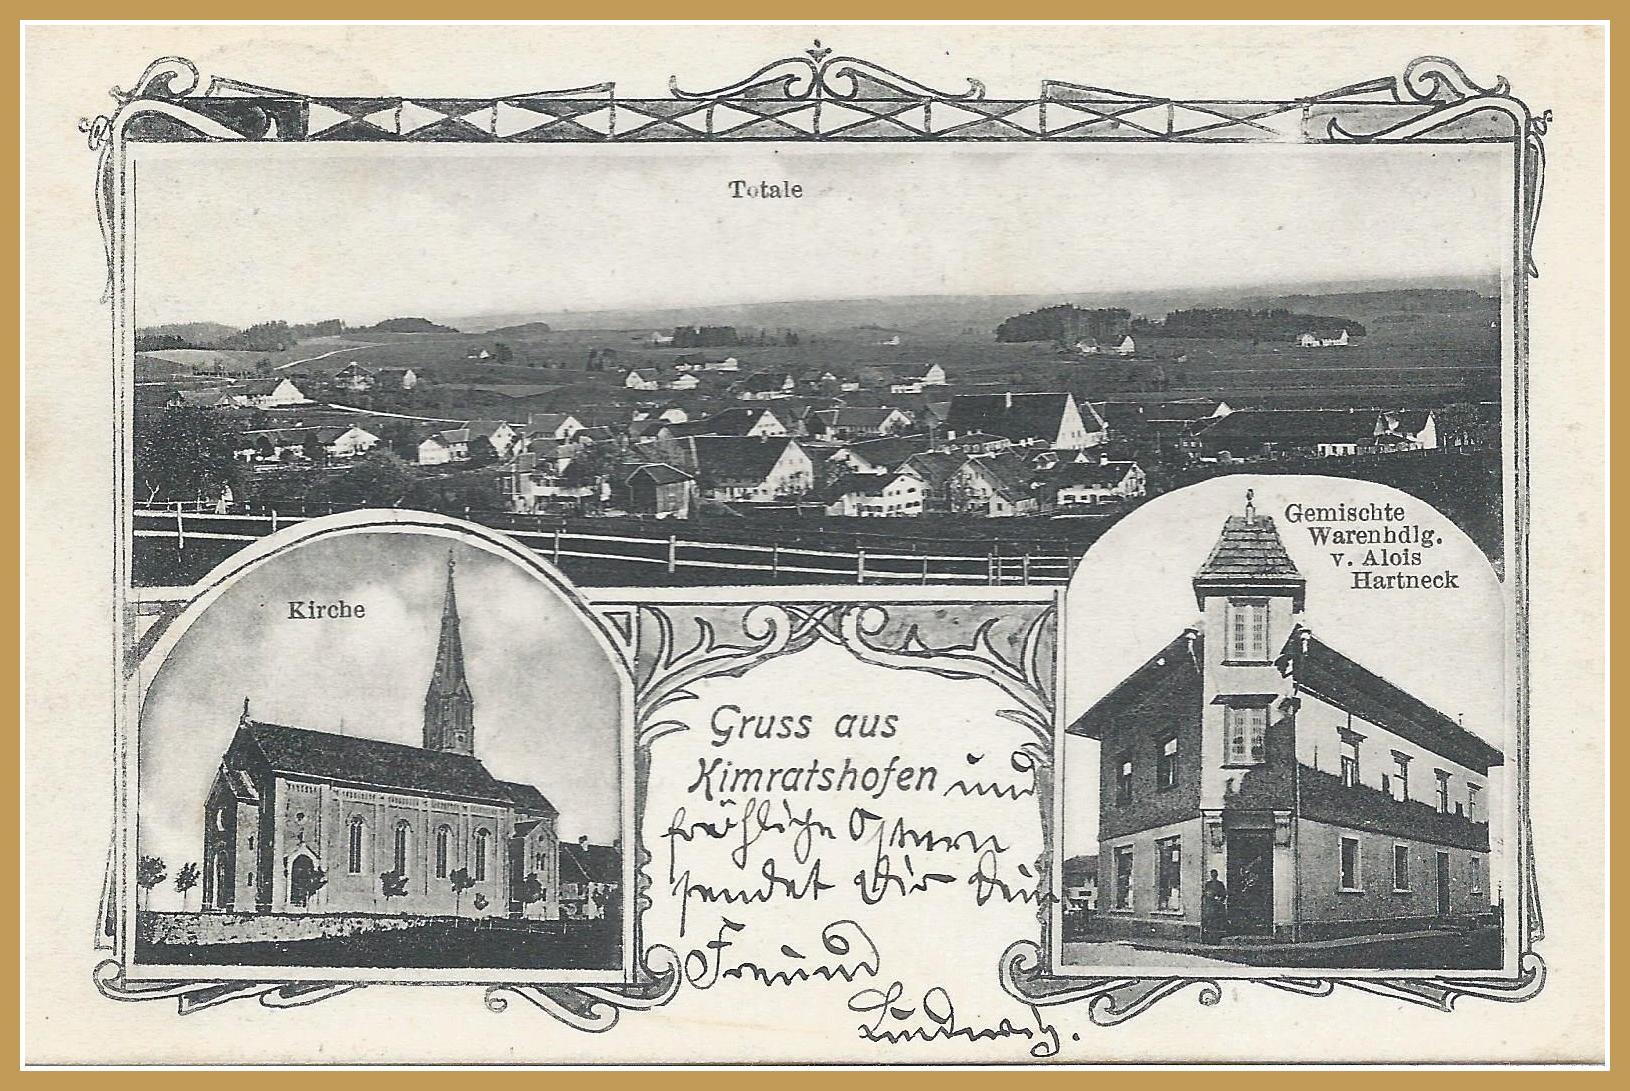 Totale
Gemischte
Warenhdlg.
v. Alois
Hartneck
Kirche
Gruss aus
Kimratshofen und
fröhliche Ostern
sendet Dir Dein
Freund
Ludwig.